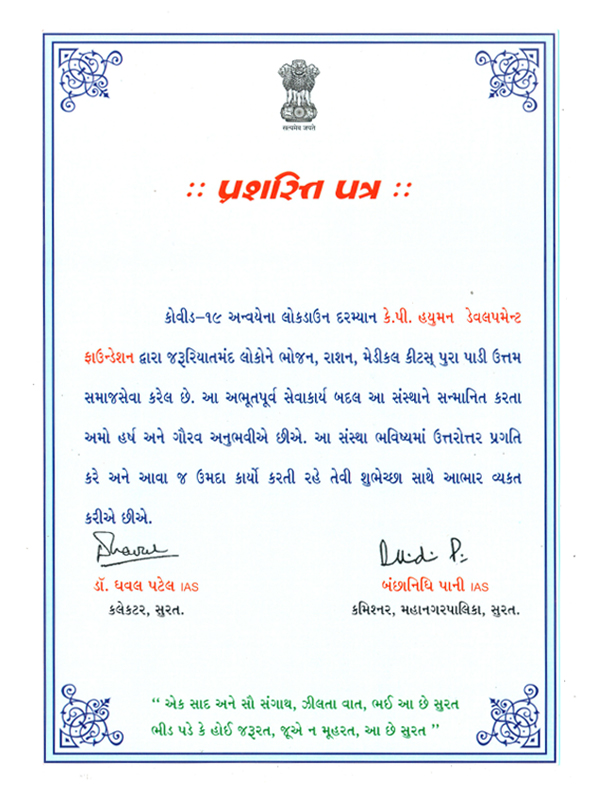 सत्यमेव जयते
:: પ્રશસ્તિ પત્ર ::
કોવીડ–૧૯ અન્વયેના લોકડાઉન દરમ્યાન કે.પી. હયુમન ડેવલપમેન્ટ
ફાઉન્ડેશન દ્વારા જરૂરિયાતમંદ લોકોને ભોજન, રાશન, મેડીકલ કીટસ્ પુરા પાડી ઉત્તમ
સમાજસેવા કરેલ છે. આ અભૂતપૂર્વ સેવાકાર્ય બદલ આ સંસ્થાને સન્માનિત કરતા
અમો હર્ષ અને ગૌરવ અનુભવીએ છીએ. આ સંસ્થા ભવિષ્યમાં ઉત્તરોત્તર પ્રગતિ
કરે અને આવા જ ઉમદા કાર્યો કરતી રહે તેવી શુભેચ્છા સાથે આભાર વ્યકત
કરીએ છીએ.
ડૉ. ધવલ પટેલ IAS
કલેકટર, સુરત.
બંછાનિધિ પાની IAS
કમિશ્નર, મહાનગરપાલિકા, સુરત.
“ એક સાદ અને સૌ સંગાથ, ઝીલતા વાત, ભઈ આ છે સુરત
ભીડ પડે કે હોઈ જરૂરત, જૂએ ન મૂહરત, આ છે સુરત ”